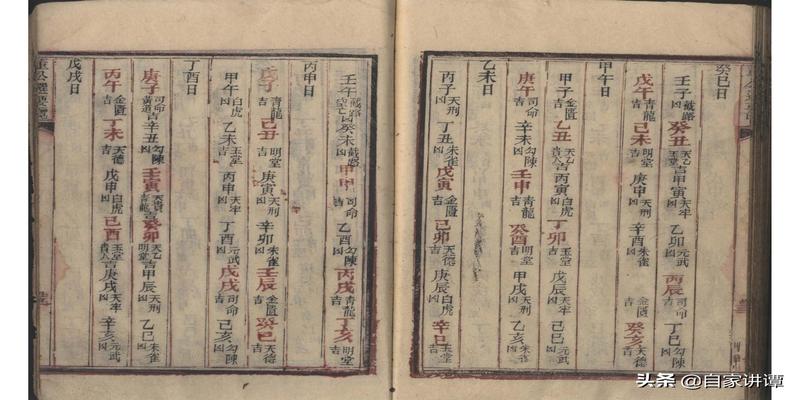 癸巳日
壬子截路凶癸丑天乙吉甲寅天牢凶乙卯元武凶丙辰丁巳勾陳凶
戊午青龍吉己未明堂吉庚申天刑凶辛酉朱雀凶金匱吉癸亥天德吉
甲午日
甲子金匱吉乙丑天乙貴人吉丙寅白虎凶丁卯玉堂吉戊辰天牢凶己巳元武凶
庚午司命吉辛未勾陳凶壬申青龍吉癸酉明堂吉甲戌天刑凶乙亥朱雀凶
乙未日
丙子天刑凶丁丑朱雀凶戊寅金匱吉己卯天德吉白虎凶辛巳玉堂吉
壬午截路空亡凶癸未截路凶甲申司命吉乙酉勾陳凶丙戌青龍吉丁亥明堂吉
丙申日
戊子青龍吉己丑明堂吉庚寅天刑凶辛卯朱雀凶壬辰金匱吉癸巳天德吉
甲午白虎凶乙未玉堂吉丙申天牢凶丁酉元武凶戊戌司命吉己亥勾陳凶
丁酉日
庚子司命黃道吉辛丑勾陳凶壬寅青龍吉癸卯天乙吉甲辰天刑凶乙巳朱雀凶
丙午金匱吉丁未天德吉戊申白虎凶己酉玉堂貴人吉庚戌天牢凶辛亥元武凶
戊戌日
头条 @自家讲谭